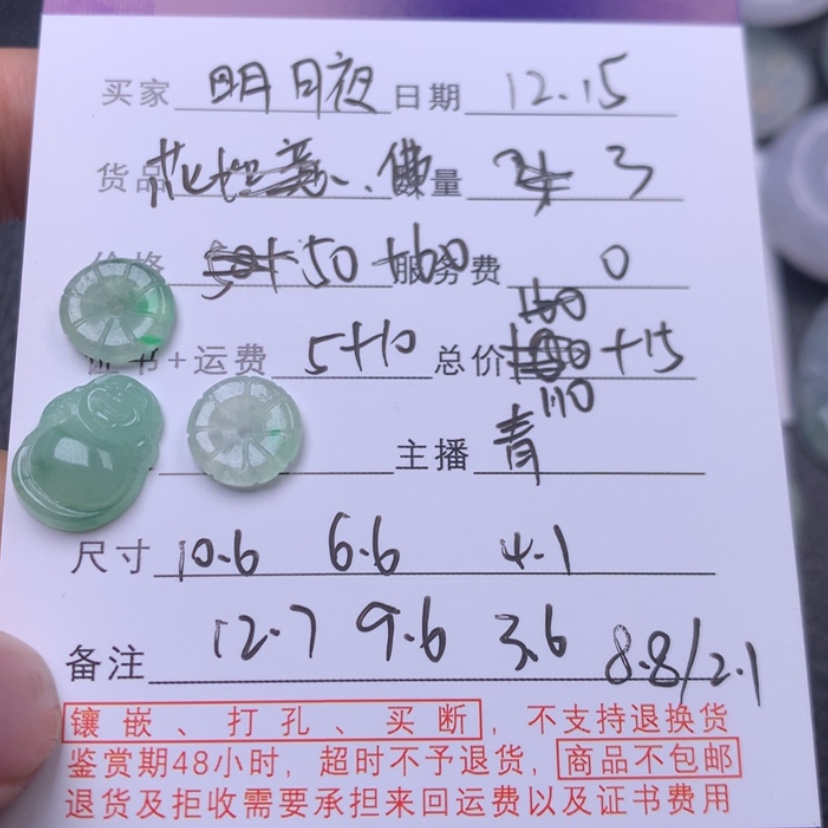 买家 明月夜 日期 12.15
货品 花 佛 数量 3
价格 50+60 服务费 0
160
证书+运费 5+10 总价 +15
110
主播 青
尺寸 10.6 6.6 4.1
备注 12.7 9.6 3.6 8.8/2.1
镶嵌、打孔、买断，不支持退换货
鉴赏期48小时，超时不予退货，商品不包邮
退货及拒收需要承担来回运费以及证书费用